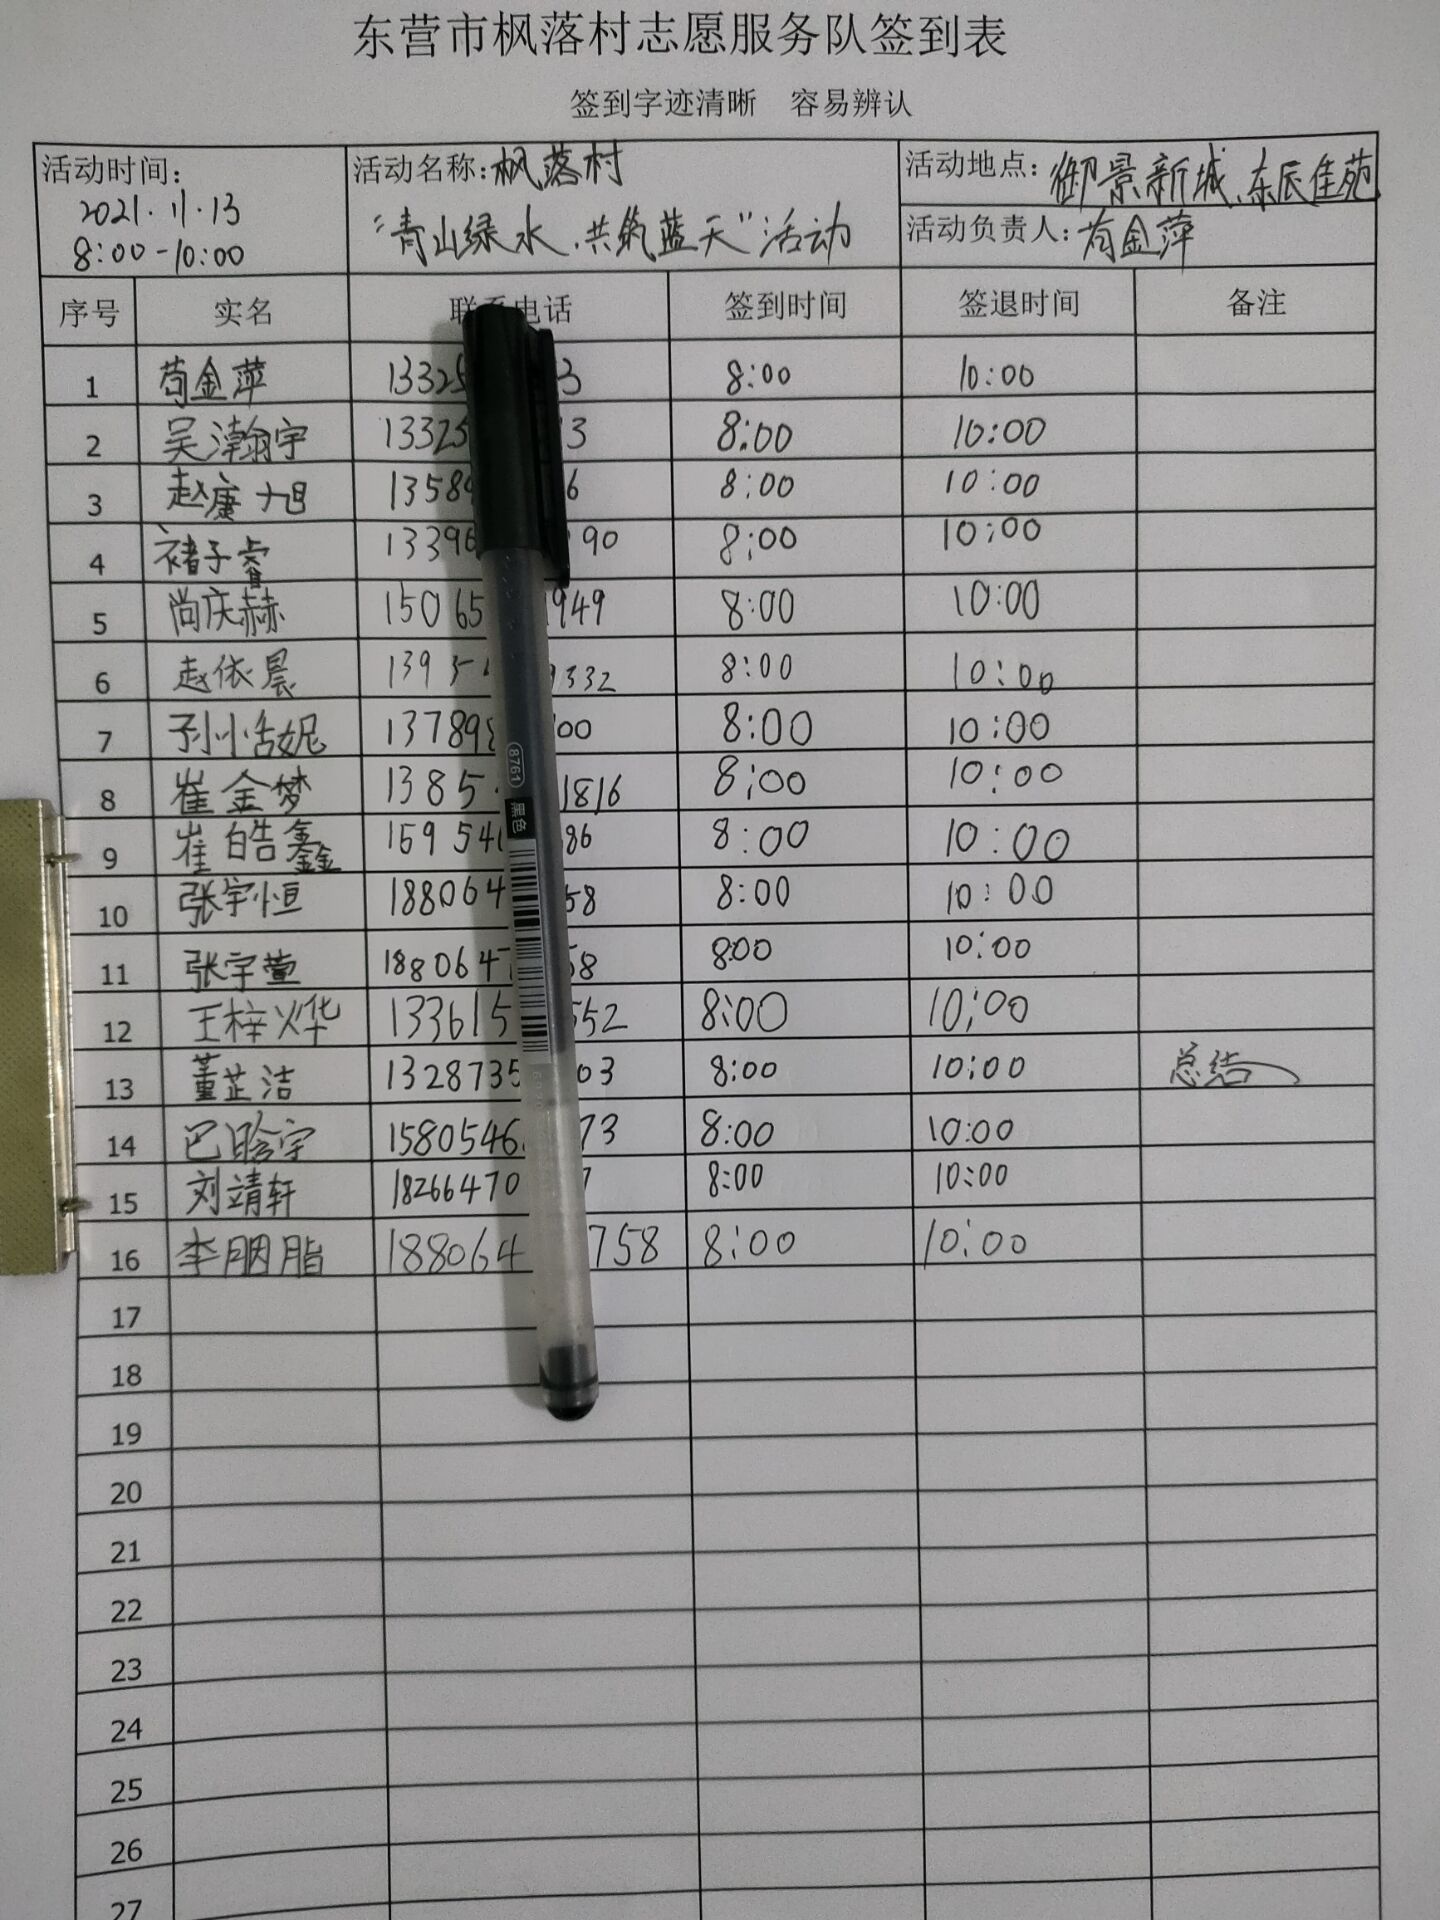 东营市枫落村志愿服务队签到表
签到字迹清晰 容易辨认
活动时间:
2021.11.13
8:00-10:00
活动名称:枫落村
“青山绿水,共筑蓝天”活动
活动地点:御景新城、东辰佳苑
活动负责人:苟金萍
序号 实名 联系电话 签到时间 签退时间 备注
1 苟金萍 13325 3 8:00 10:00
2 吴瀚宇 13325 3 8:00 10:00
3 赵康旭 1358 6 8:00 10:00
4 褚子睿 1339 90 8:00 10:00
5 尚庆赫 15065 949 8:00 10:00
6 赵依晨 139 332 8:00 10:00
7 孙小恬妮 13789 00 8:00 10:00
8 崔金梦 1385 1816 8:00 10:00
9 崔皓鑫 15954 86 8:00 10:00
10 张宇恒 188064 58 8:00 10:00
11 张宇萱 188064 58 8:00 10:00
12 王梓烨 133615 552 8:00 10:00
13 董芷洁 1328735 03 8:00 10:00 总结
14 巴晗宇 1580546 73 8:00 10:00
15 刘靖轩 18266470 8:00 10:00
16 李胭脂 188064 758 8:00 10:00
17
18
19
20
21
22
23
24
25
26
27
8761
黑色